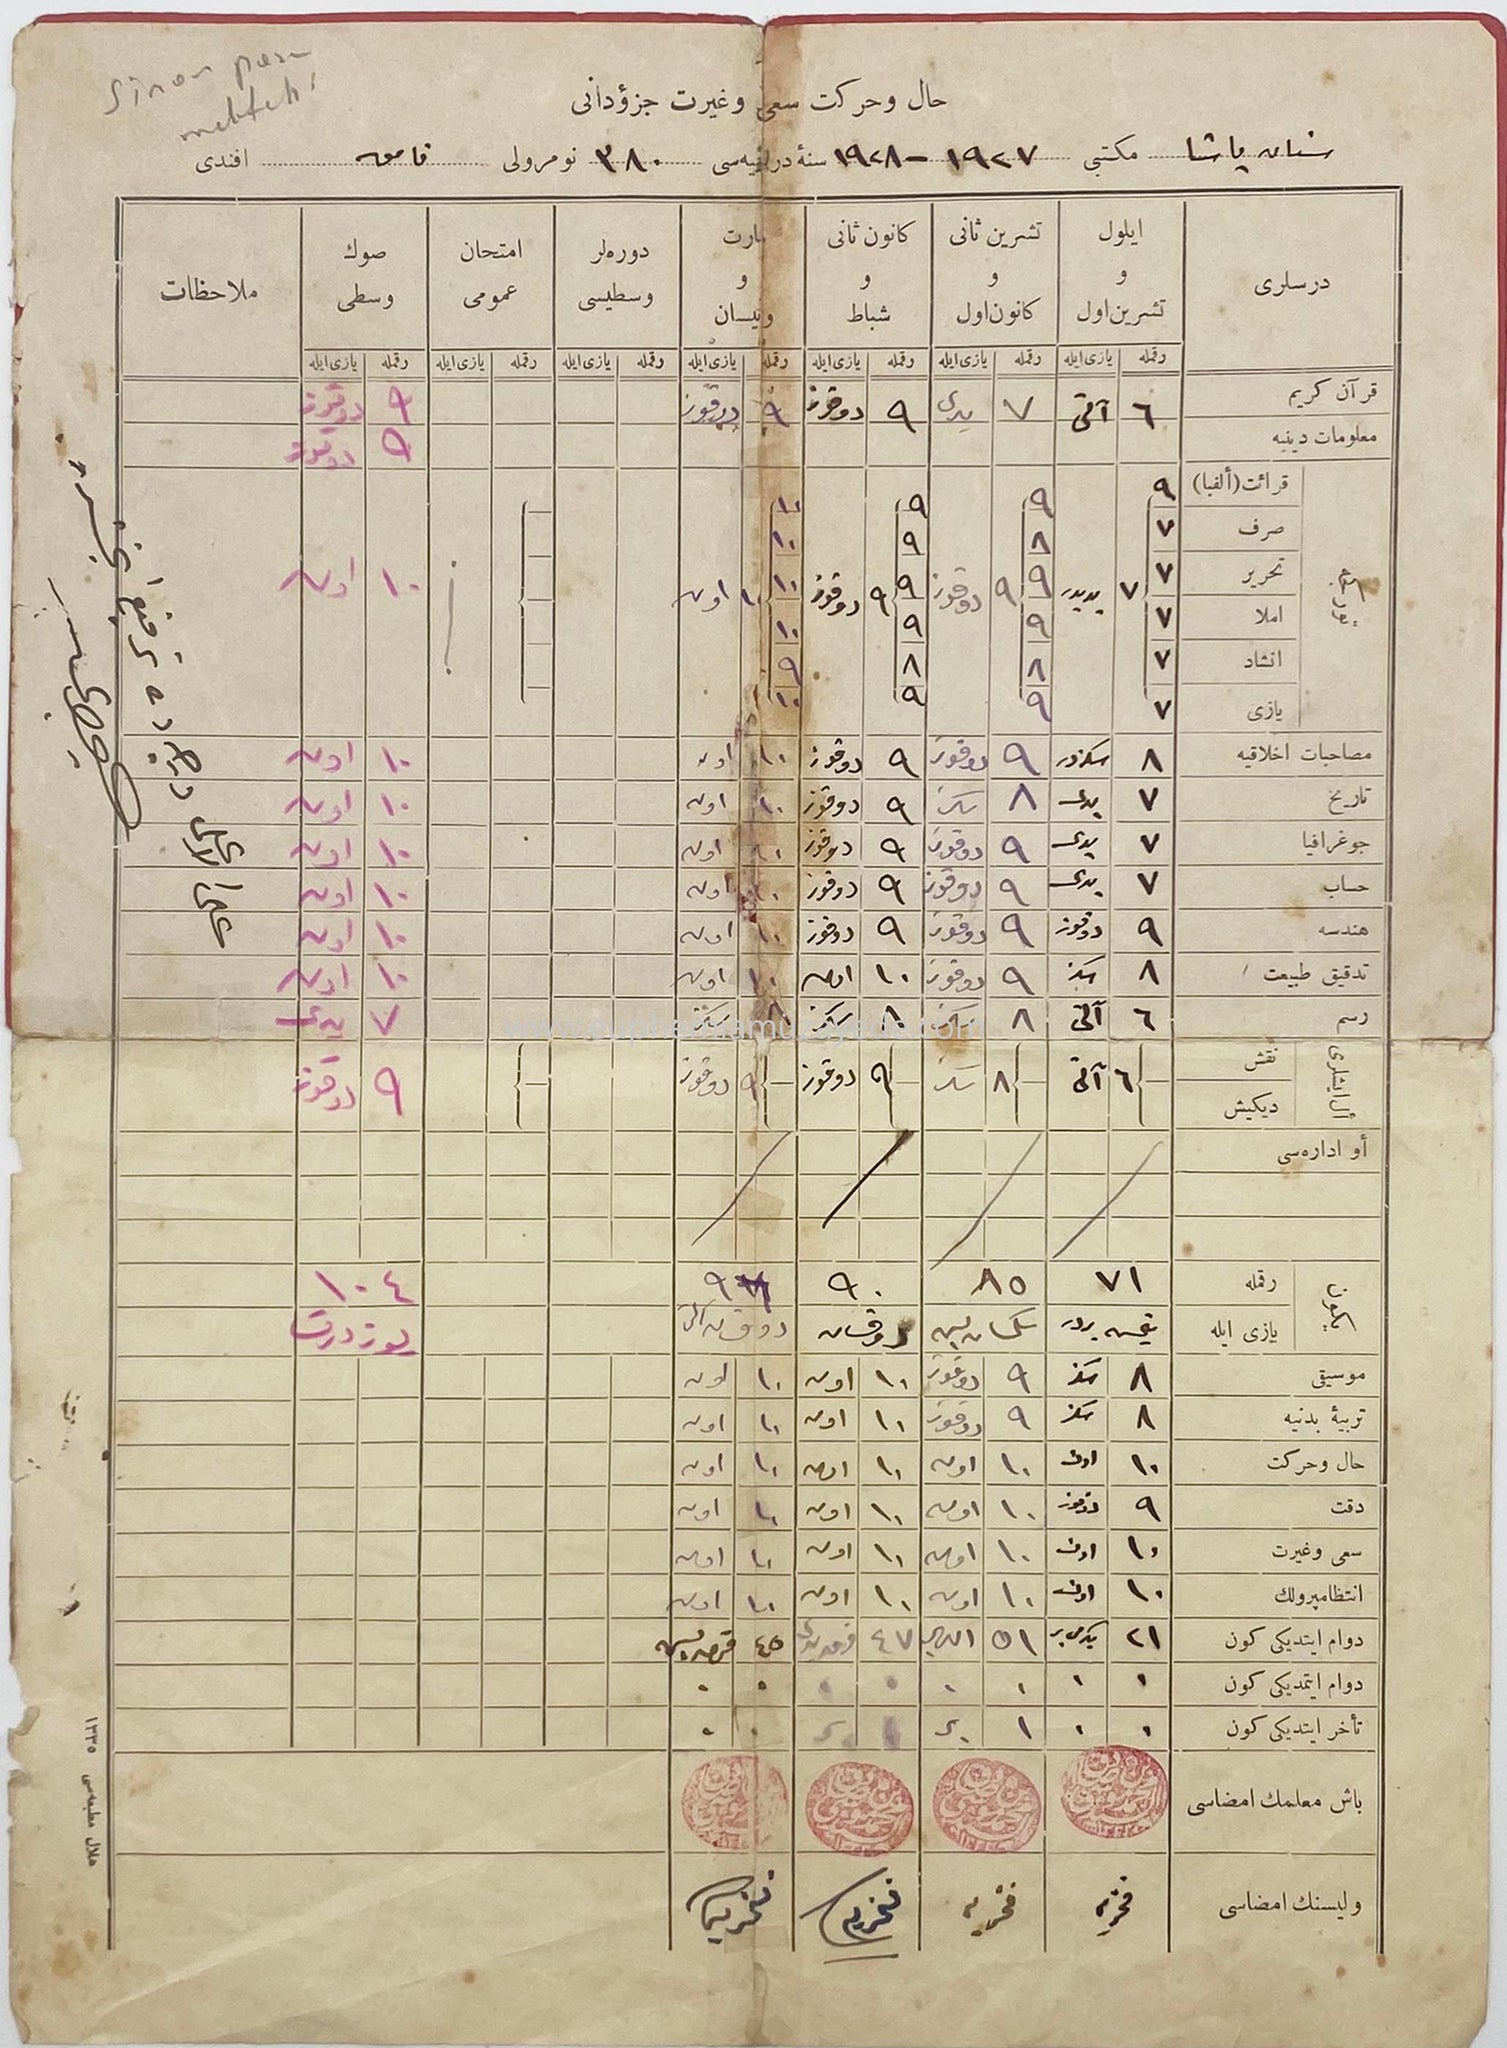 Sinan paşa
mektebi
حال و حركت سعی و غیرت جزؤدانی
سنان پاشا مكتبی ١٩٢٧ – ١٩٢٨ سنهٔ دراسیه‌سی ٣٨٠ نومرولی افندی
درسلری | ایلول و تشرین اول | تشرین ثانی و كانون اول | كانون ثانی و شباط | مارت و نیسان | دوره‌لر وسطیسی | امتحان عمومی | صوك وسطی | ملاحظات
رقمله | یازی ایله | رقمله | یازی ایله | رقمله | یازی ایله | رقمله | یازی ایله | رقمله | یازی ایله | رقمله | یازی ایله | رقمله | یازی ایله
قرآن كریم | ٦ | آلتی | ٧ | یدی | ٩ | دوقوز | ٩ | دوقوز | ٩ | دوقوز
معلومات دینیه | دوقوز
قرائت (ألفبا) | ٩ | ٩ | ٩ | ١٠
صرف | ٧ | ٨ | ٩ | ١٠
تحریر | ٧ | ٩ | ٩ | ١٠
٧ | ٩ | دوقوز | ٩ | دوقوز | ١٠ | اون | ١٠ | اون
املا | ٧ | ٩ | ٩ | ١٠
انشاد | ٧ | ٨ | ٨ | ٩
یازی | ٧ | ٩ | ٩ | ١٠
مصاحبات اخلاقیه | ٨ | ٩ | دوقوز | ٩ | دوقوز | ١٠ | اون | ١٠ | اون
تاریخ | ٧ | یدی | ٨ | سكز | ٩ | دوقوز | ١٠ | اون | ١٠ | اون
جوغرافیا | ٧ | یدی | ٩ | دوقوز | ٩ | دوقوز | ١٠ | اون | ١٠ | اون
حساب | ٧ | یدی | ٩ | دوقوز | ٩ | دوقوز | ١٠ | اون | ١٠ | اون
هندسه | ٩ | دوقوز | ٩ | دوقوز | ٩ | دوقوز | ١٠ | اون | ١٠ | اون
تدقیق طبیعت | ٨ | سكز | ٩ | دوقوز | ١٠ | اون | ١٠ | اون | ١٠ | اون
رسم | ٦ | آلتی | ٨ | سكز | ٨ | سكز | ٨ | سكز | ٧ | یدی
أل ایشلری
نقش
٦ | آلتی | ٨ | سكز | ٩ | دوقوز | ٩ | دوقوز | ٩ | دوقوز
دیكیش
أو اداره‌سی
یكون
رقمله | ٧١ | ٨٥ | ٩٠ | ١٠٤
یازی ایله | یتمش بر | سكسان بش | دوقسان | یوز درت
موسیقی | ٨ | سكز | ٩ | دوقوز | ١٠ | اون | ١٠ | اون
تربیهٔ بدنیه | ٨ | سكز | ٩ | دوقوز | ١٠ | اون | ١٠ | اون
حال و حركت | ١٠ | اون | ١٠ | اون | ١٠ | اون | ١٠ | اون
دقت | ٩ | دوقوز | ١٠ | اون | ١٠ | اون | ١٠ | اون
سعی و غیرت | ١٠ | اون | ١٠ | اون | ١٠ | اون | ١٠ | اون
انتظامپرولك | ١٠ | اون | ١٠ | اون | ١٠ | اون | ١٠ | اون
دوام ایتدیكی كون | ٢١ | یكرمی بر | ٥١ | اللی بر | ٤٧ | قرق یدی | ٤٥ | قرق بش
دوام ایتمدیكی كون | ٠ | ٠ | ٠ | ٠ | ٠ | ٠ | ٠ | ٠
تأخر ایتدیكی كون | ٠ | ٠ | ١ | بر | ١ | بر | ٠ | ٠
باش معلمك امضاسی
ولیسنك امضاسی | فخریه | فخریه | فخریه | فخریه
هلال مطبعه‌سی ١٣٣٥